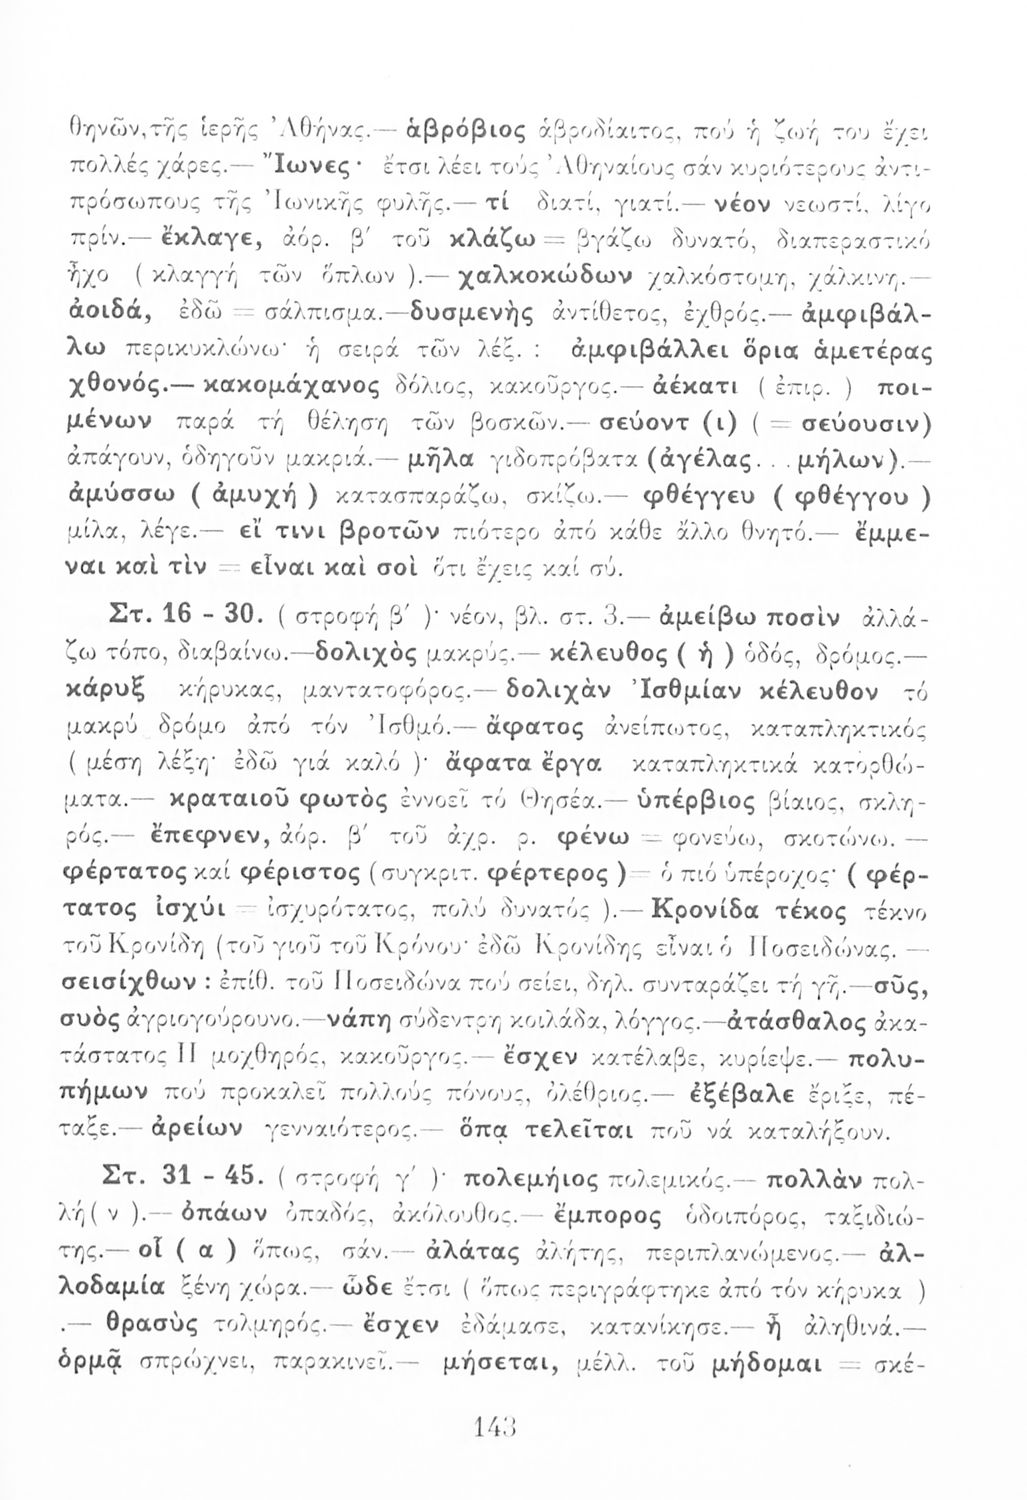 θηνῶν,τῆς ἱερῆς Ἀθήνας.— ἁβρόβιος ἁβροδίαιτος, πού ἡ ζωή του ἔχει
πολλές χάρες.— Ἴωνες· ἔτσι λέει τούς Ἀθηναίους σάν κυριότερους ἀντι-
πρόσωπους τῆς Ἰωνικῆς φυλῆς.— τί διατί, γιατί.— νέον νεωστί, λίγο
πρίν.— ἔκλαγε, ἀόρ. β′ τοῦ κλάζω = βγάζω δυνατό, διαπεραστικό
ἦχο ( κλαγγή τῶν ὅπλων ).— χαλκοκώδων χαλκόστομη, χάλκινη.—
ἀοιδά, ἐδῶ = σάλπισμα.—δυσμενὴς ἀντίθετος, ἐχθρός.— ἀμφιβάλ-
λω περικυκλώνω· ἡ σειρά τῶν λέξ. : ἀμφιβάλλει ὅρια ἁμετέρας
χθονός.— κακομάχανος δόλιος, κακοῦργος.— ἀέκατι ( ἐπιρ. ) ποι-
μένων παρά τή θέληση τῶν βοσκῶν.— σεύοντ (ι) ( = σεύουσιν)
ἀπάγουν, ὁδηγοῦν μακριά.— μῆλα γιδοπρόβατα (ἀγέλας. . . μήλων).—
ἀμύσσω ( ἀμυχή ) κατασπαράζω, σκίζω.— φθέγγευ ( φθέγγου )
μίλα, λέγε.— εἴ τινι βροτῶν πιότερο ἀπό κάθε ἄλλο θνητό.— ἔμμε-
ναι καὶ τὶν = εἶναι καὶ σοὶ ὅτι ἔχεις καί σύ.
Στ. 16 - 30. ( στροφή β′ )· νέον, βλ. στ. 3.— ἀμείβω ποσὶν ἀλλά-
ζω τόπο, διαβαίνω.—δολιχὸς μακρύς.— κέλευθος ( ἡ ) ὁδός, δρόμος.—
κάρυξ κήρυκας, μαντατοφόρος.— δολιχὰν Ἰσθμίαν κέλευθον τό
μακρύ δρόμο ἀπό τόν Ἰσθμό.— ἄφατος ἀνείπωτος, καταπληκτικός
( μέση λέξη· ἐδῶ γιά καλό )· ἄφατα ἔργα καταπληκτικά κατορθώ-
ματα.— κραταιοῦ φωτὸς ἐννοεῖ τό Θησέα.— ὑπέρβιος βίαιος, σκλη-
ρός.— ἔπεφνεν, ἀόρ. β′ τοῦ ἀχρ. ρ. φένω = φονεύω, σκοτώνω. —
φέρτατος καί φέριστος (συγκριτ. φέρτερος ) = ὁ πιό ὑπέροχος· ( φέρ-
τατος ἰσχύι = ἰσχυρότατος, πολύ δυνατός ).— Κρονίδα τέκος τέκνο
τοῦ Κρονίδη (τοῦ γιοῦ τοῦ Κρόνου· ἐδῶ Κρονίδης εἶναι ὁ Ποσειδώνας. —
σεισίχθων : ἐπίθ. τοῦ Ποσειδώνα πού σείει, δηλ. συνταράζει τή γῆ.—σῦς,
συὸς ἀγριογούρουνο.—νάπη σύδεντρη κοιλάδα, λόγγος.—ἀτάσθαλος ἀκα-
τάστατος Π μοχθηρός, κακοῦργος.— ἔσχεν κατέλαβε, κυρίεψε.— πολυ-
πήμων πού προκαλεῖ πολλούς πόνους, ὀλέθριος.— ἐξέβαλε ἔριξε, πέ-
ταξε.— ἀρείων γενναιότερος.— ὅπᾳ τελεῖται ποῦ νά καταλήξουν.
Στ. 31 - 45. ( στροφή γ′ )· πολεμήιος πολεμικός.— πολλὰν πολ-
λή( ν ).— ὀπάων ὀπαδός, ἀκόλουθος.— ἔμπορος ὁδοιπόρος, ταξιδιώ-
της.— οἷ ( α ) ὅπως, σάν.— ἀλάτας ἀλήτης, περιπλανώμενος.— ἀλ-
λοδαμία ξένη χώρα.— ὧδε ἔτσι ( ὅπως περιγράφτηκε ἀπό τόν κήρυκα )
.— θρασὺς τολμηρός.— ἔσχεν ἐδάμασε, κατανίκησε.— ἦ ἀληθινά.—
ὁρμᾷ σπρώχνει, παρακινεῖ.— μήσεται, μέλλ. τοῦ μήδομαι = σκέ-
143